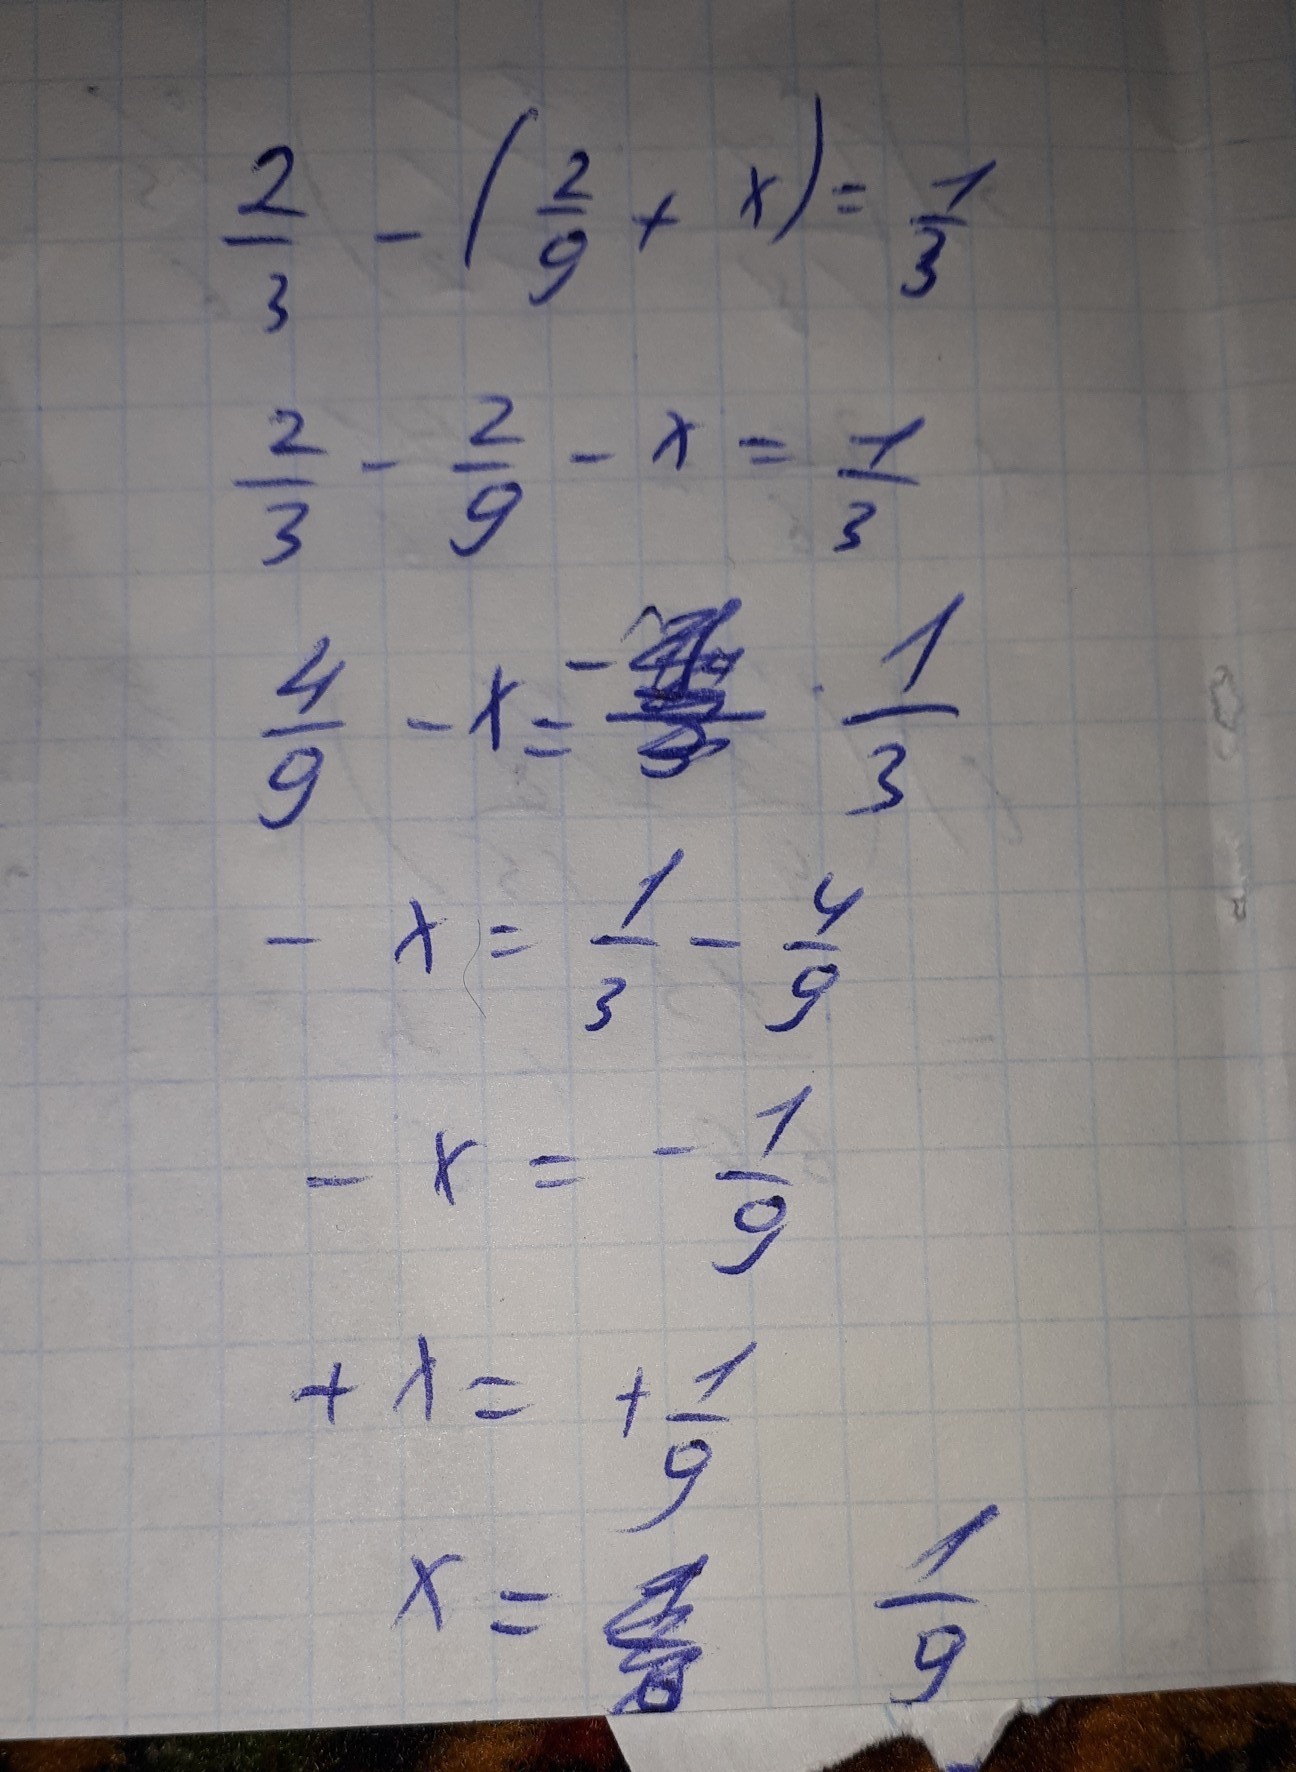 2/3 - (2/9 + x) = 1/3
2/3 - 2/9 - x = 1/3
4/9 - x = - 1/3
- x = 1/3 - 4/9
- x = - 1/9
+ x = + 1/9
x = 1/9